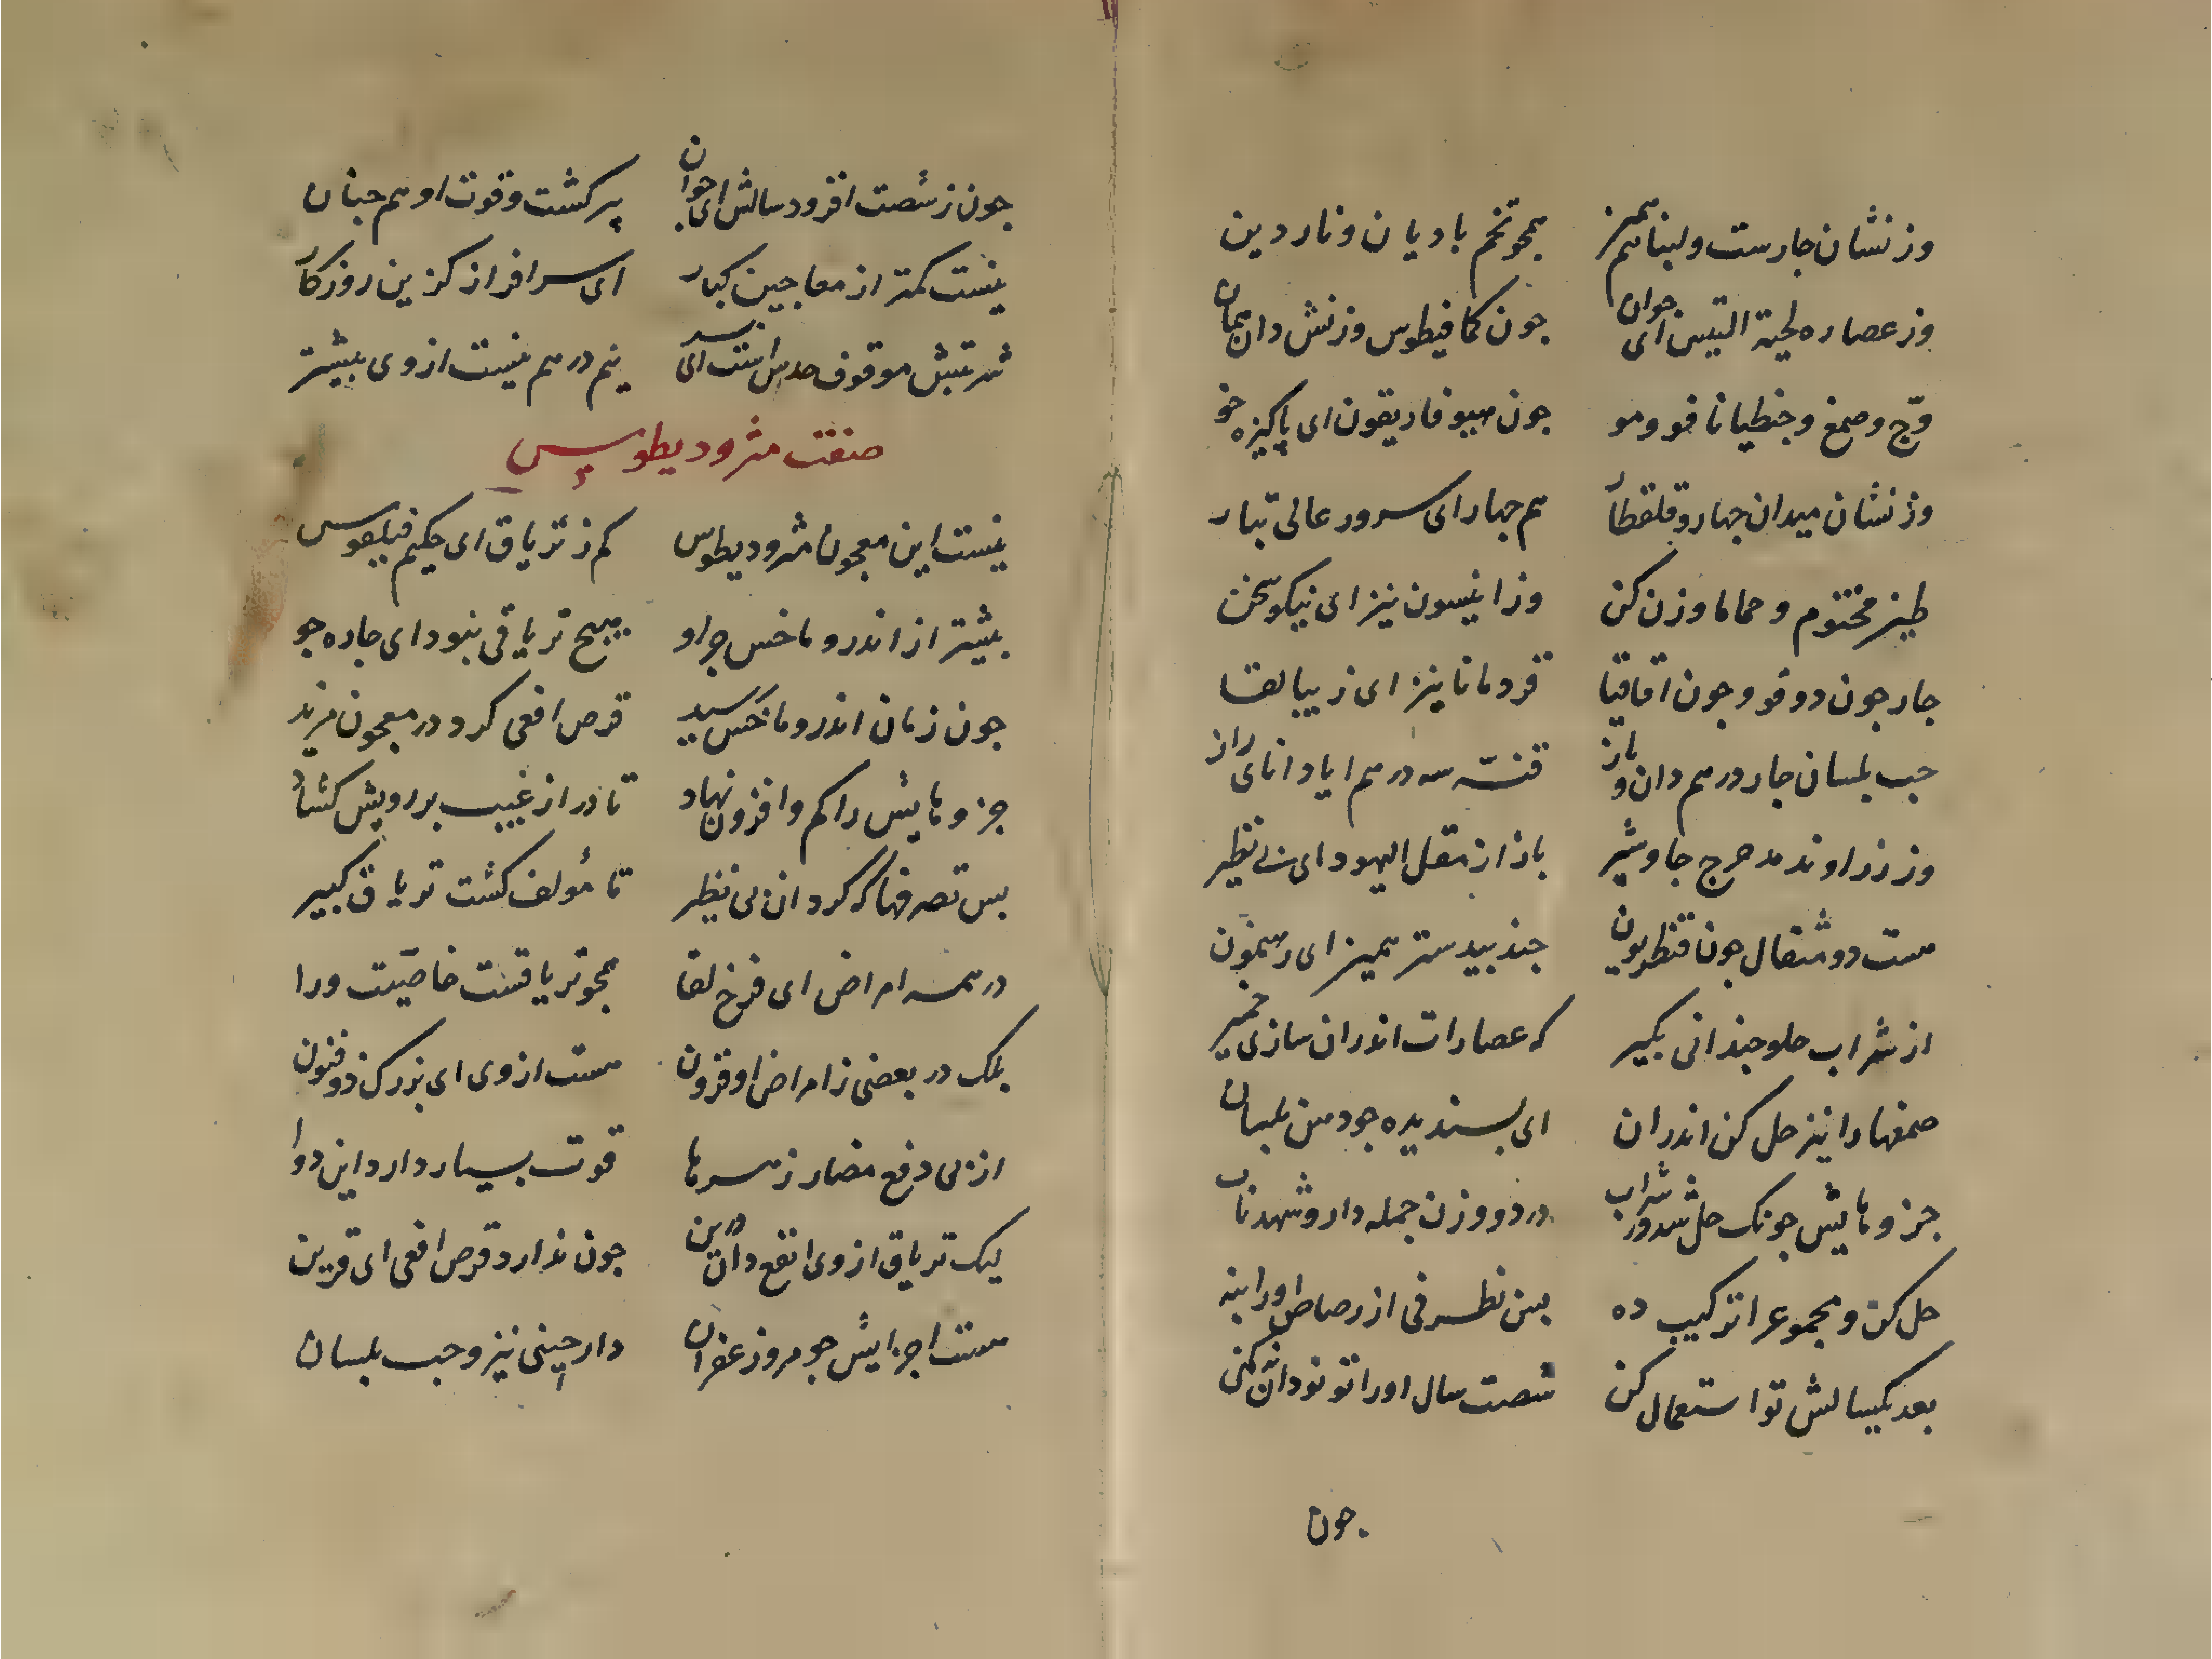 وزنشان جارست ولبنا هم همیز همجو تخم بادیان و ناردین
وز عصاره لحیة التیس ای جوان جون کمافیطوس وزنش دان همان
وج وصمغ و جنطیانا فو و مو جون هیوفاریقون ای پاکیزه خو
وزنشان میدان جهار و قلقطار هم جهار ای سرور عالی تبار
طین مختوم و حماما وزن کن وز انیسون نیز ای نیکو سخن
جار جون دوقو و جون اقاقیا قردمانا نیز ای زیبا لقا
حب بلسان جار درهم دان و باز قنّه سه درهم ایا دانای راز
وز زراوند مدحرج جاوشیر باز از مقل الیهود ای بی نظیر
هست دو مثقال جون قنطریون جندبیدستر همیز ای رهنمون
از شراب حلو جندانی بکیر که عصارات اندران سازی خمیر
صمغها را نیز حل کن اندران ای بسندیده جو دهن بلسان
جزوهایش جونک حل شد در شراب در دو وزن جمله دارو شهد ناب
حل کن و مجموع را ترکیب ده بس نظرفی از رصاص او را بنه
بعد یکسالش تو استعمال کن شصت سال او را تو نو دان نه کهن
جون
جون ز شصت افزود سالش ای جوان پیر کشت و قوت او هم جنان
نیست کمتر از معاجین کبار ای سرافراز کزین روزکار
شربتش موقوف حدس است ای پسر نیم درهم نیست از وی بیشتر
صفت مثرودیطوس
نیست این معجون مثرودیطوس کم ز تریاق ای حکیم فیلقوس
بیشتر از اندروماخس جز او هیج تریاقی نبود ای جاره جو
جون زمان اندروماخس رسید قرص افعی کرد در معجون مزید
جزوهایش را کم و افزون نهاد تا در از غیب بر رویش کشاد
بس تصرفها که کرد ان بی نظیر تا مؤلف کشت تریاق کبیر
در همه امراض ای فرخ لقا همجو تریاقست خاصیّت ورا
بلک در بعضی ز امراض او فزون هست از وی ای بزرک ذوفنون
از بی دفع مضار زهرها قوت بسیار دارد این دوا
لیک تریاق از وی انفع دان درین جون ندارد قرص افعی ای قرین
هست اجزایش جو مر و زعفران دارچینی نیز و حب بلسان